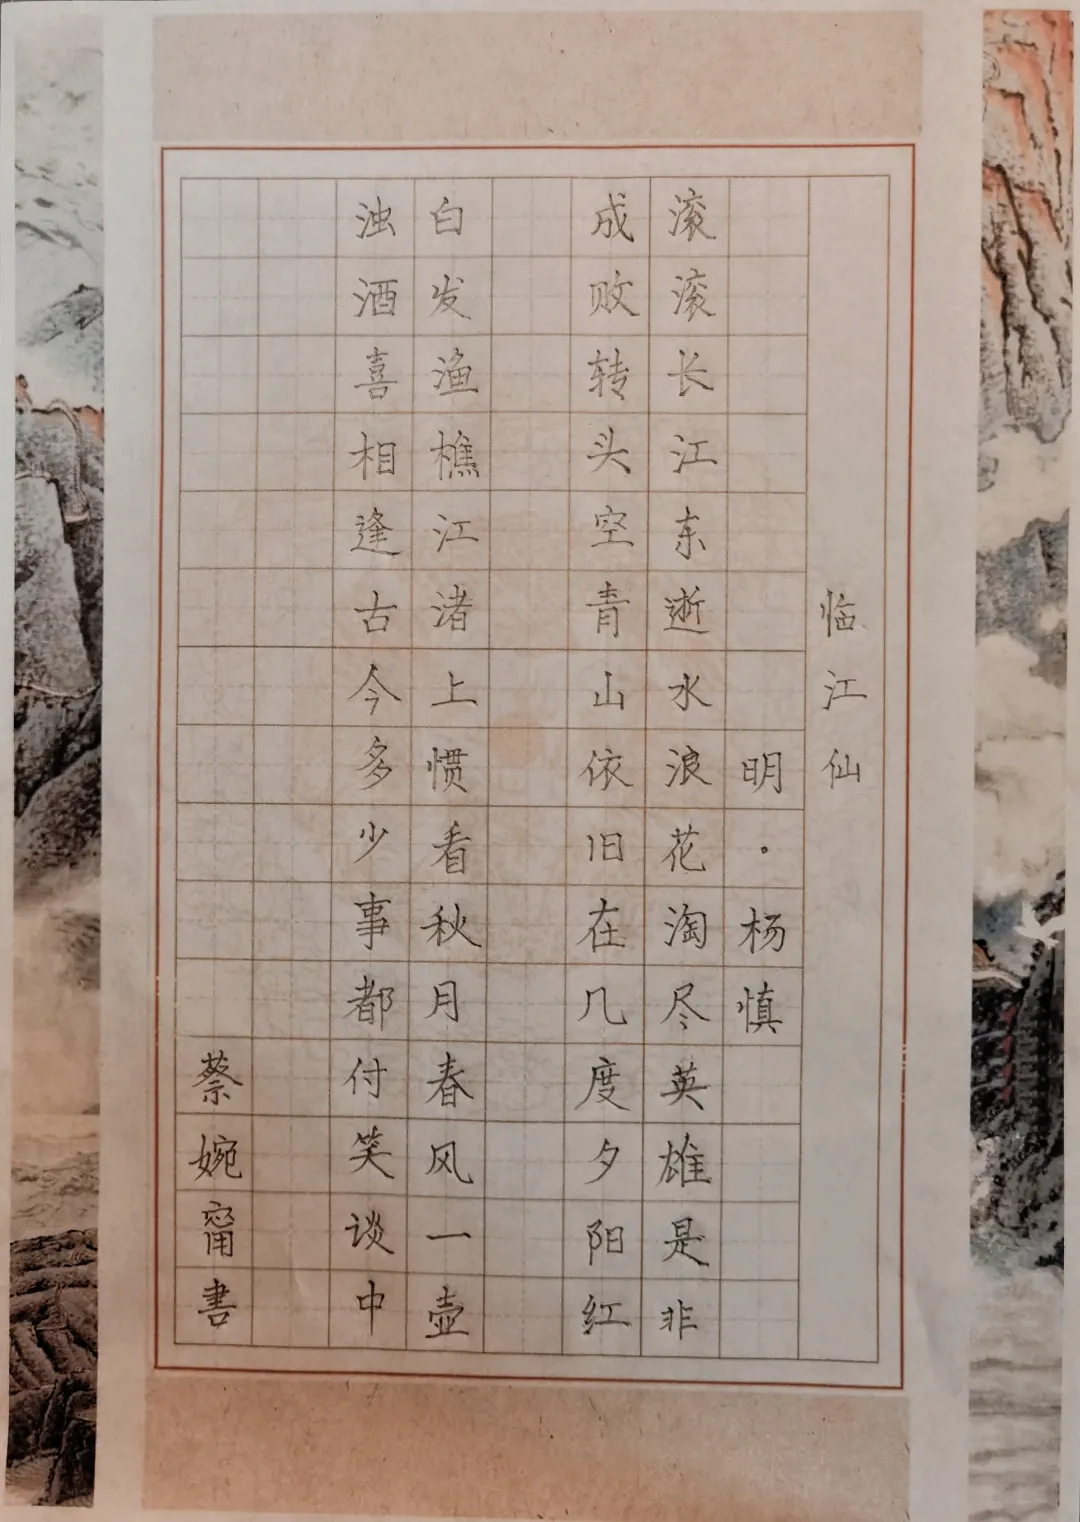 临江仙
明·杨慎
滚滚长江东逝水浪花淘尽英雄是非
成败转头空青山依旧在几度夕阳红
白发渔樵江渚上惯看秋月春风一壶
浊酒喜相逢古今多少事都付笑谈中
蔡婉甯書